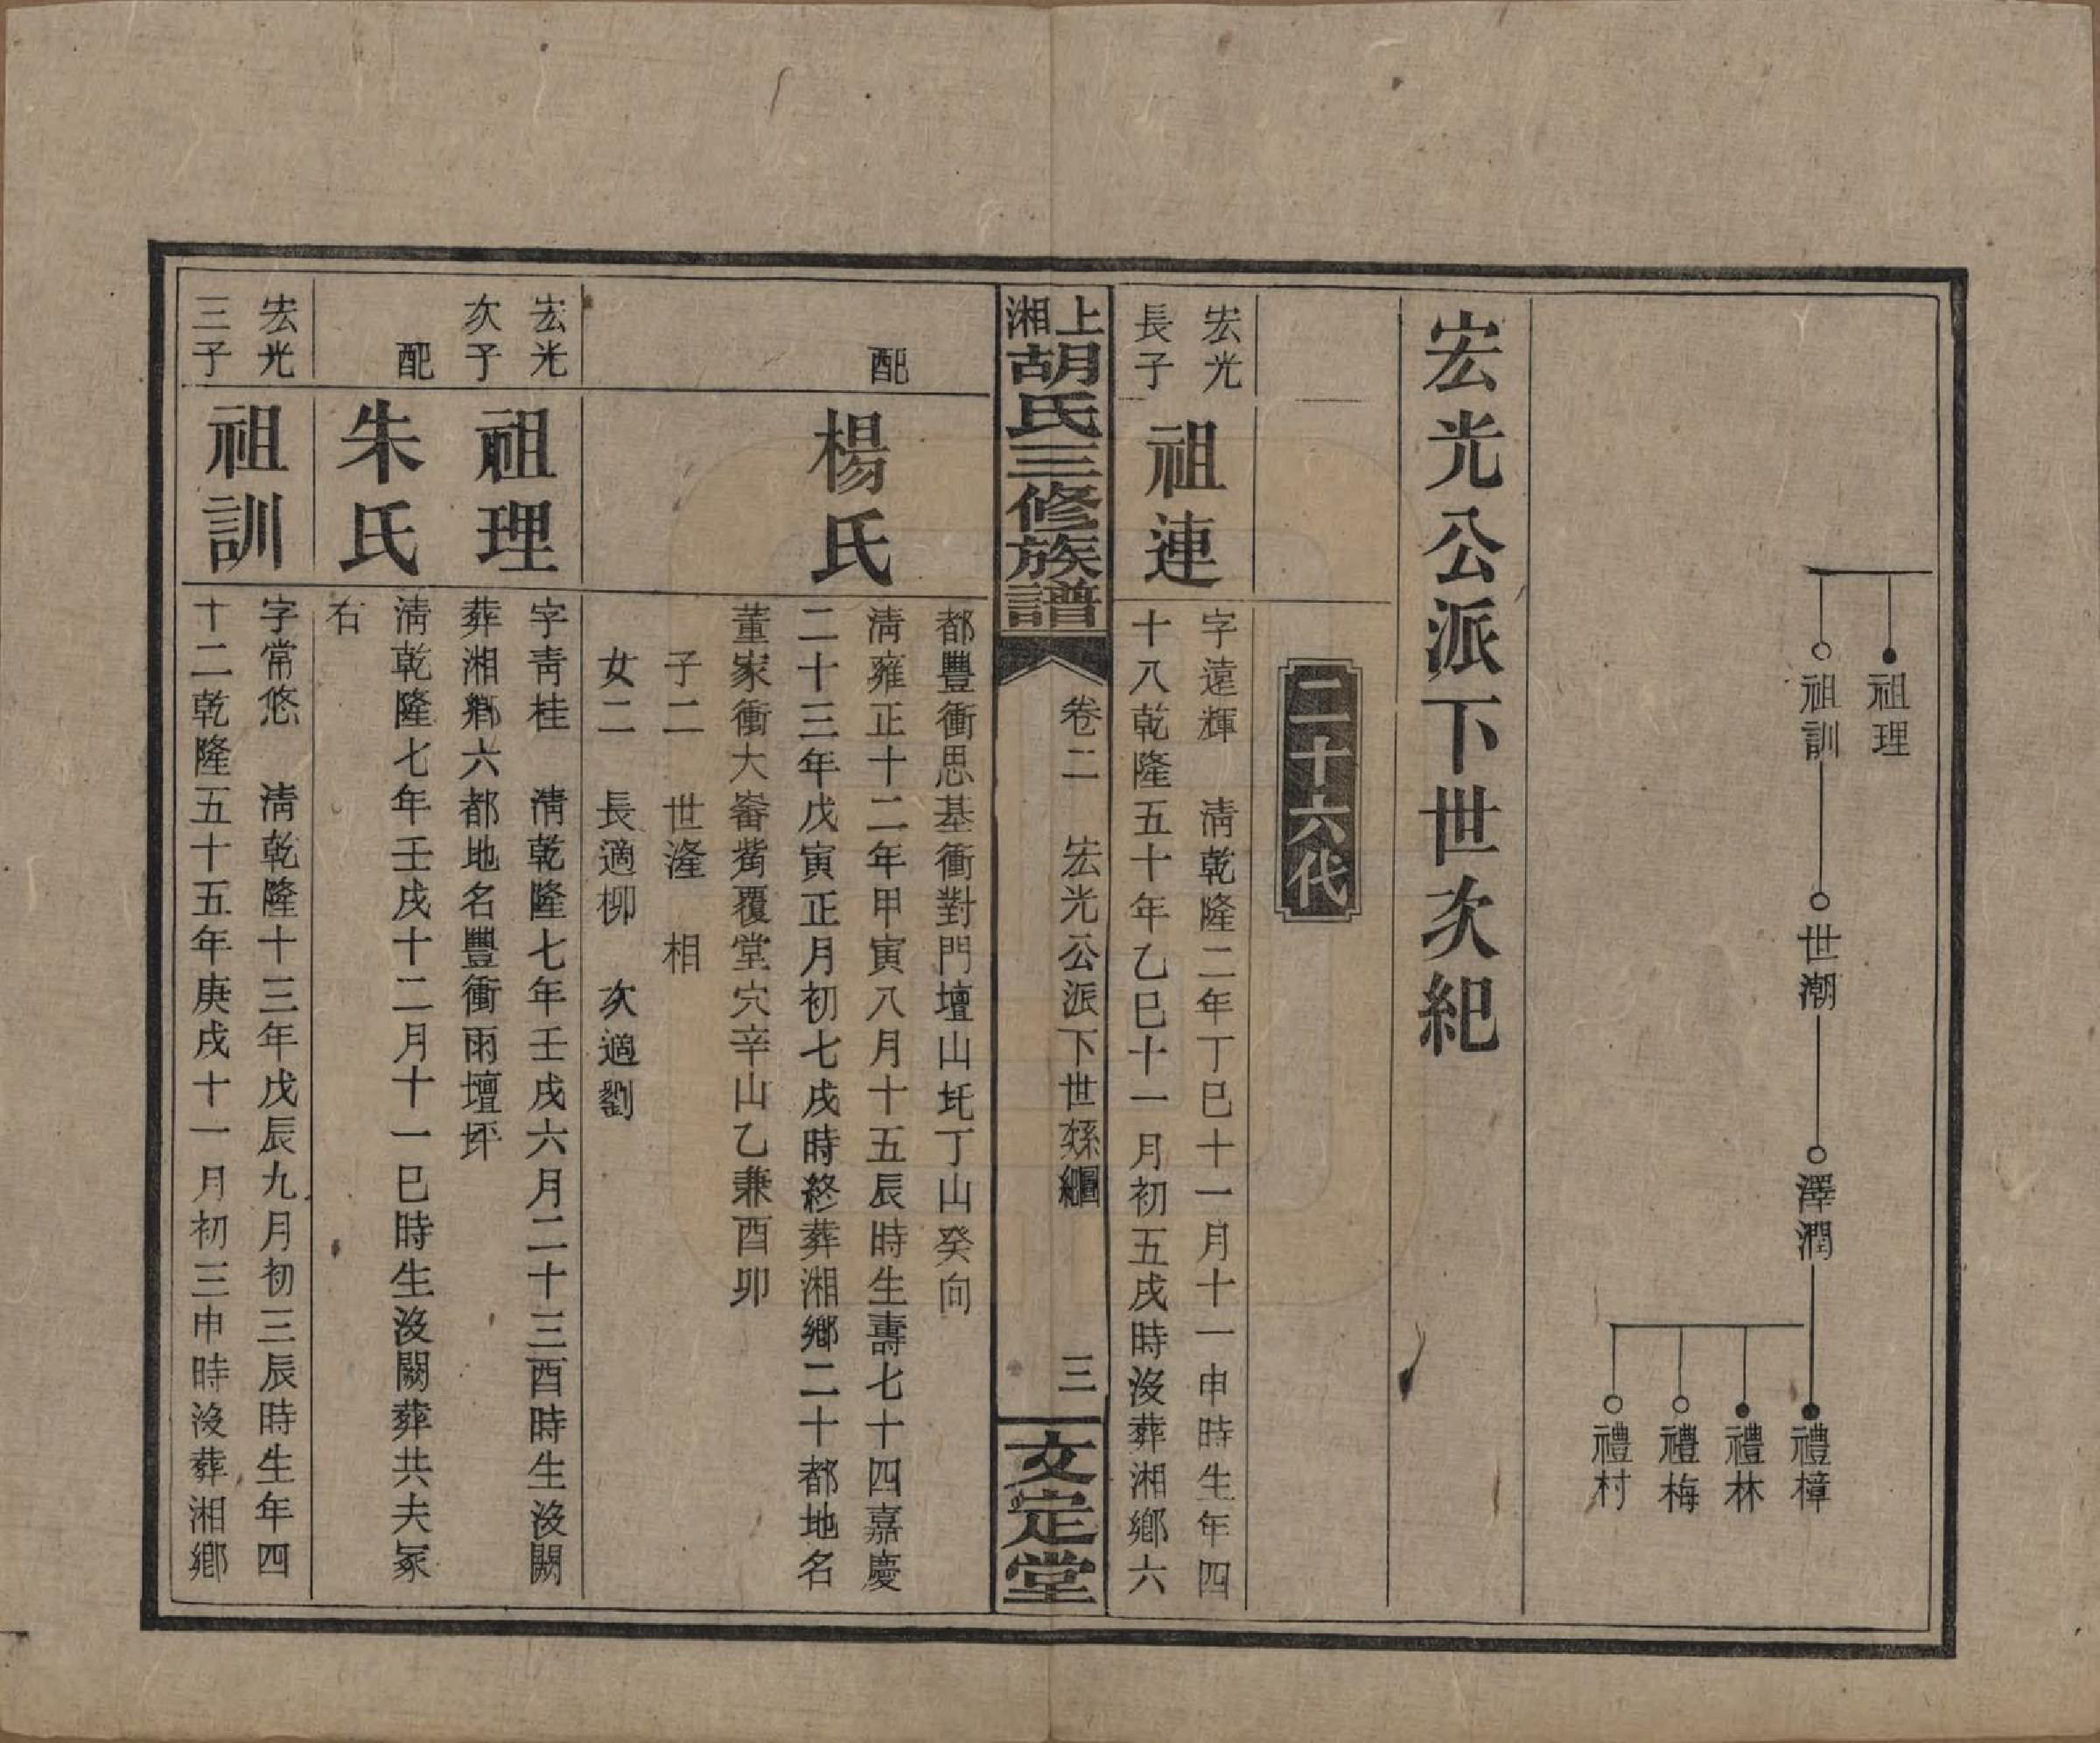 祖理
祖訓
世潮
澤潤
禮樟
禮林
禮梅
禮村
宏光公派下世次紀
二十六代
宏光
長子
祖連
字遠輝　清乾隆二年丁巳十一月十一申時生年四
十八乾隆五十年乙巳十一月初五戌時沒葬湘鄉六
上湘胡氏三修族譜
卷二　宏光公派下世系　三
文定堂
都豐衝思基衝對門壇山圫丁山癸向
配
楊氏
清雍正十二年甲寅八月十五辰時生壽七十四嘉慶
二十三年戊寅正月初七戌時終葬湘鄉二十都地名
董家衝大崙覆堂穴辛山乙兼酉卯
子二　世漋　相
女二　長適柳　次適劉
宏光
次子
祖理
字青桂　清乾隆七年壬戌六月二十三酉時生沒闕
葬湘鄉六都地名豐衝雨壇坪
配
朱氏
清乾隆七年壬戌十二月十一巳時生沒闕葬共夫冢
右
宏光
三子
祖訓
字常悠　清乾隆十三年戊辰九月初三辰時生年四
十二乾隆五十五年庚戌十一月初三申時沒葬湘鄉